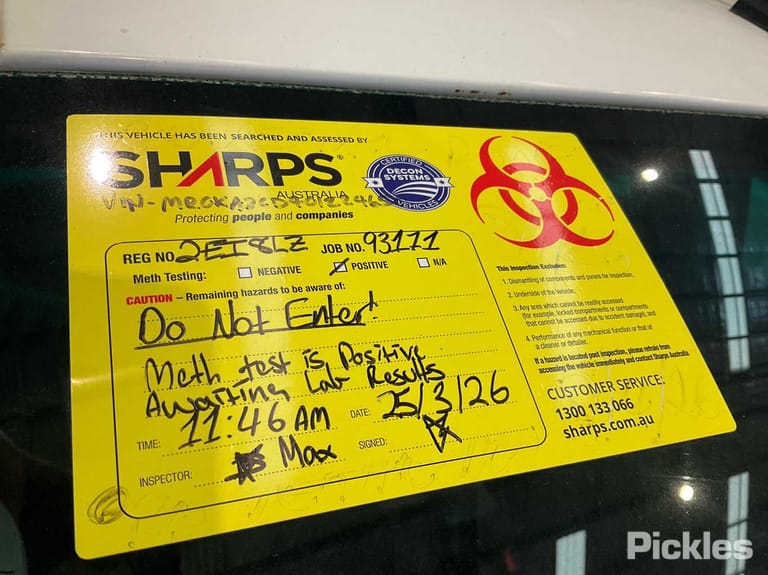 THIS VEHICLE HAS BEEN SEARCHED AND ASSESSED BY
SHARPS®
AUSTRALIA
CERTIFIED
DECON
SYSTEMS
VEHICLES
Protecting people and companies
REG NO. 2EI8LZ JOB NO. 93111
Meth Testing: NEGATIVE POSITIVE N/A
CAUTION – Remaining hazards to be aware of:
Do Not Enter
Meth test is Positive
Awaiting Lab Results
TIME: 11:46 AM DATE: 25/3/26
INSPECTOR: Max SIGNED:
This Inspection Excludes:
1. Dismantling of components and panels for inspection;
2. Underside of the Vehicle;
3. Any area which cannot be readily accessed
(for example, locked compartments or compartments
that cannot be accessed due to accident damage); and
4. Performance of any mechanical function or that of
a cleaner or detailer.
If a hazard is located post inspection, please refrain from
accessing the vehicle immediately and contact Sharps Australia
CUSTOMER SERVICE:
1300 133 066
sharps.com.au
Pickles